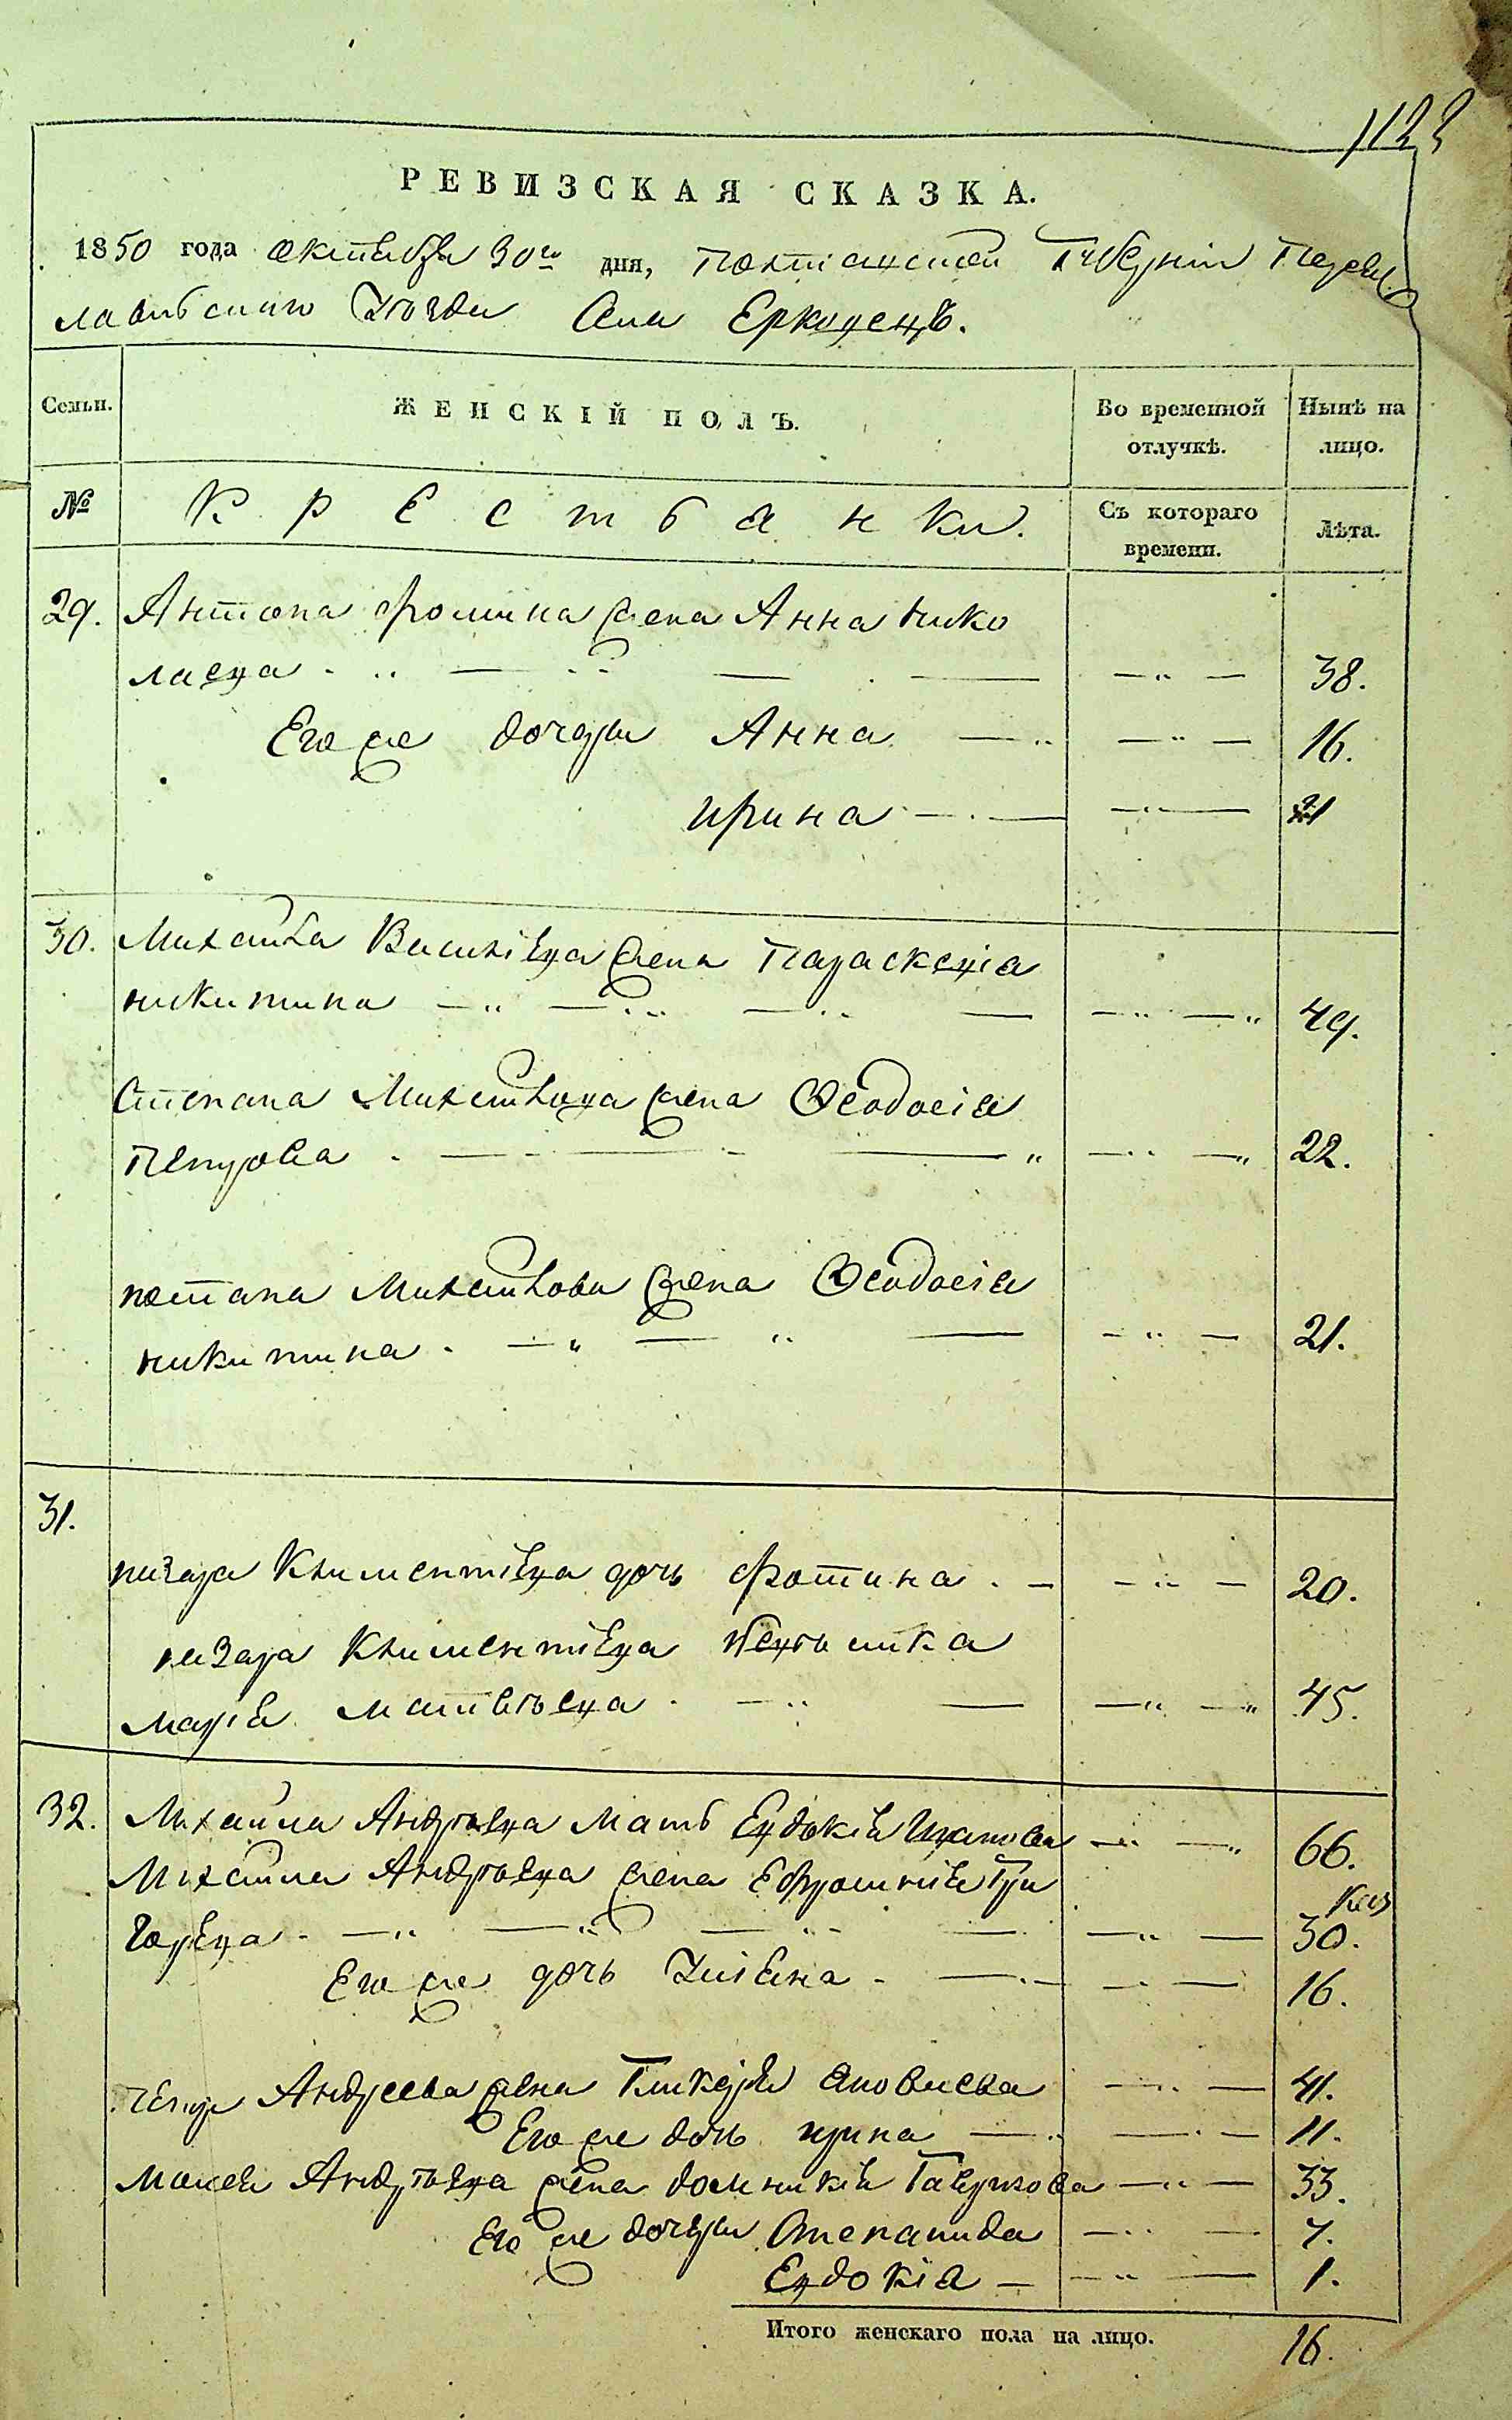 1123
РЕВИЗСКАЯ СКАЗКА.
1850 года октября 30го дня, Полтавской Губерніи Перея
славського Уѣзда Села Ерковецъ.
Семьи. ЖЕНСКІЙ ПОЛЪ. Во временной отлучкѣ. Нынѣ на лицо.
№ Крестьянки. Съ котораго времени. Лѣта.
29. Антона Фомина жена Анна Нико
лаева 38.
Его же дочери Анна 16.
Ирина
30. Михаила Василіева жена Параскевіа
Никитина 49.
Степана Михайлова жена Ѳеодосіа
Петрова 22.
Потапа Михайлова жена Ѳеодосіа
Никитина 21.
31.
Лазара Климентіева дочь Фотина 20.
Лазара Климентіева невѣстка
Марія Матвѣева 45.
32. Михаила Андрѣева мать Евдокія Иванова 66.
Михаила Андрѣева жена Ефросинія Гри
горіева 30.
Его же дочь Уліяна 16.
Петра Андреева жена Гликерія 41.
Его же дочь Ирина 11.
Моисея Андрѣева жена Домникія Гаврилова 33.
Его же дочери Степанида 7.
Евдокіа 1.
Итого женскаго пола на лицо. 16.